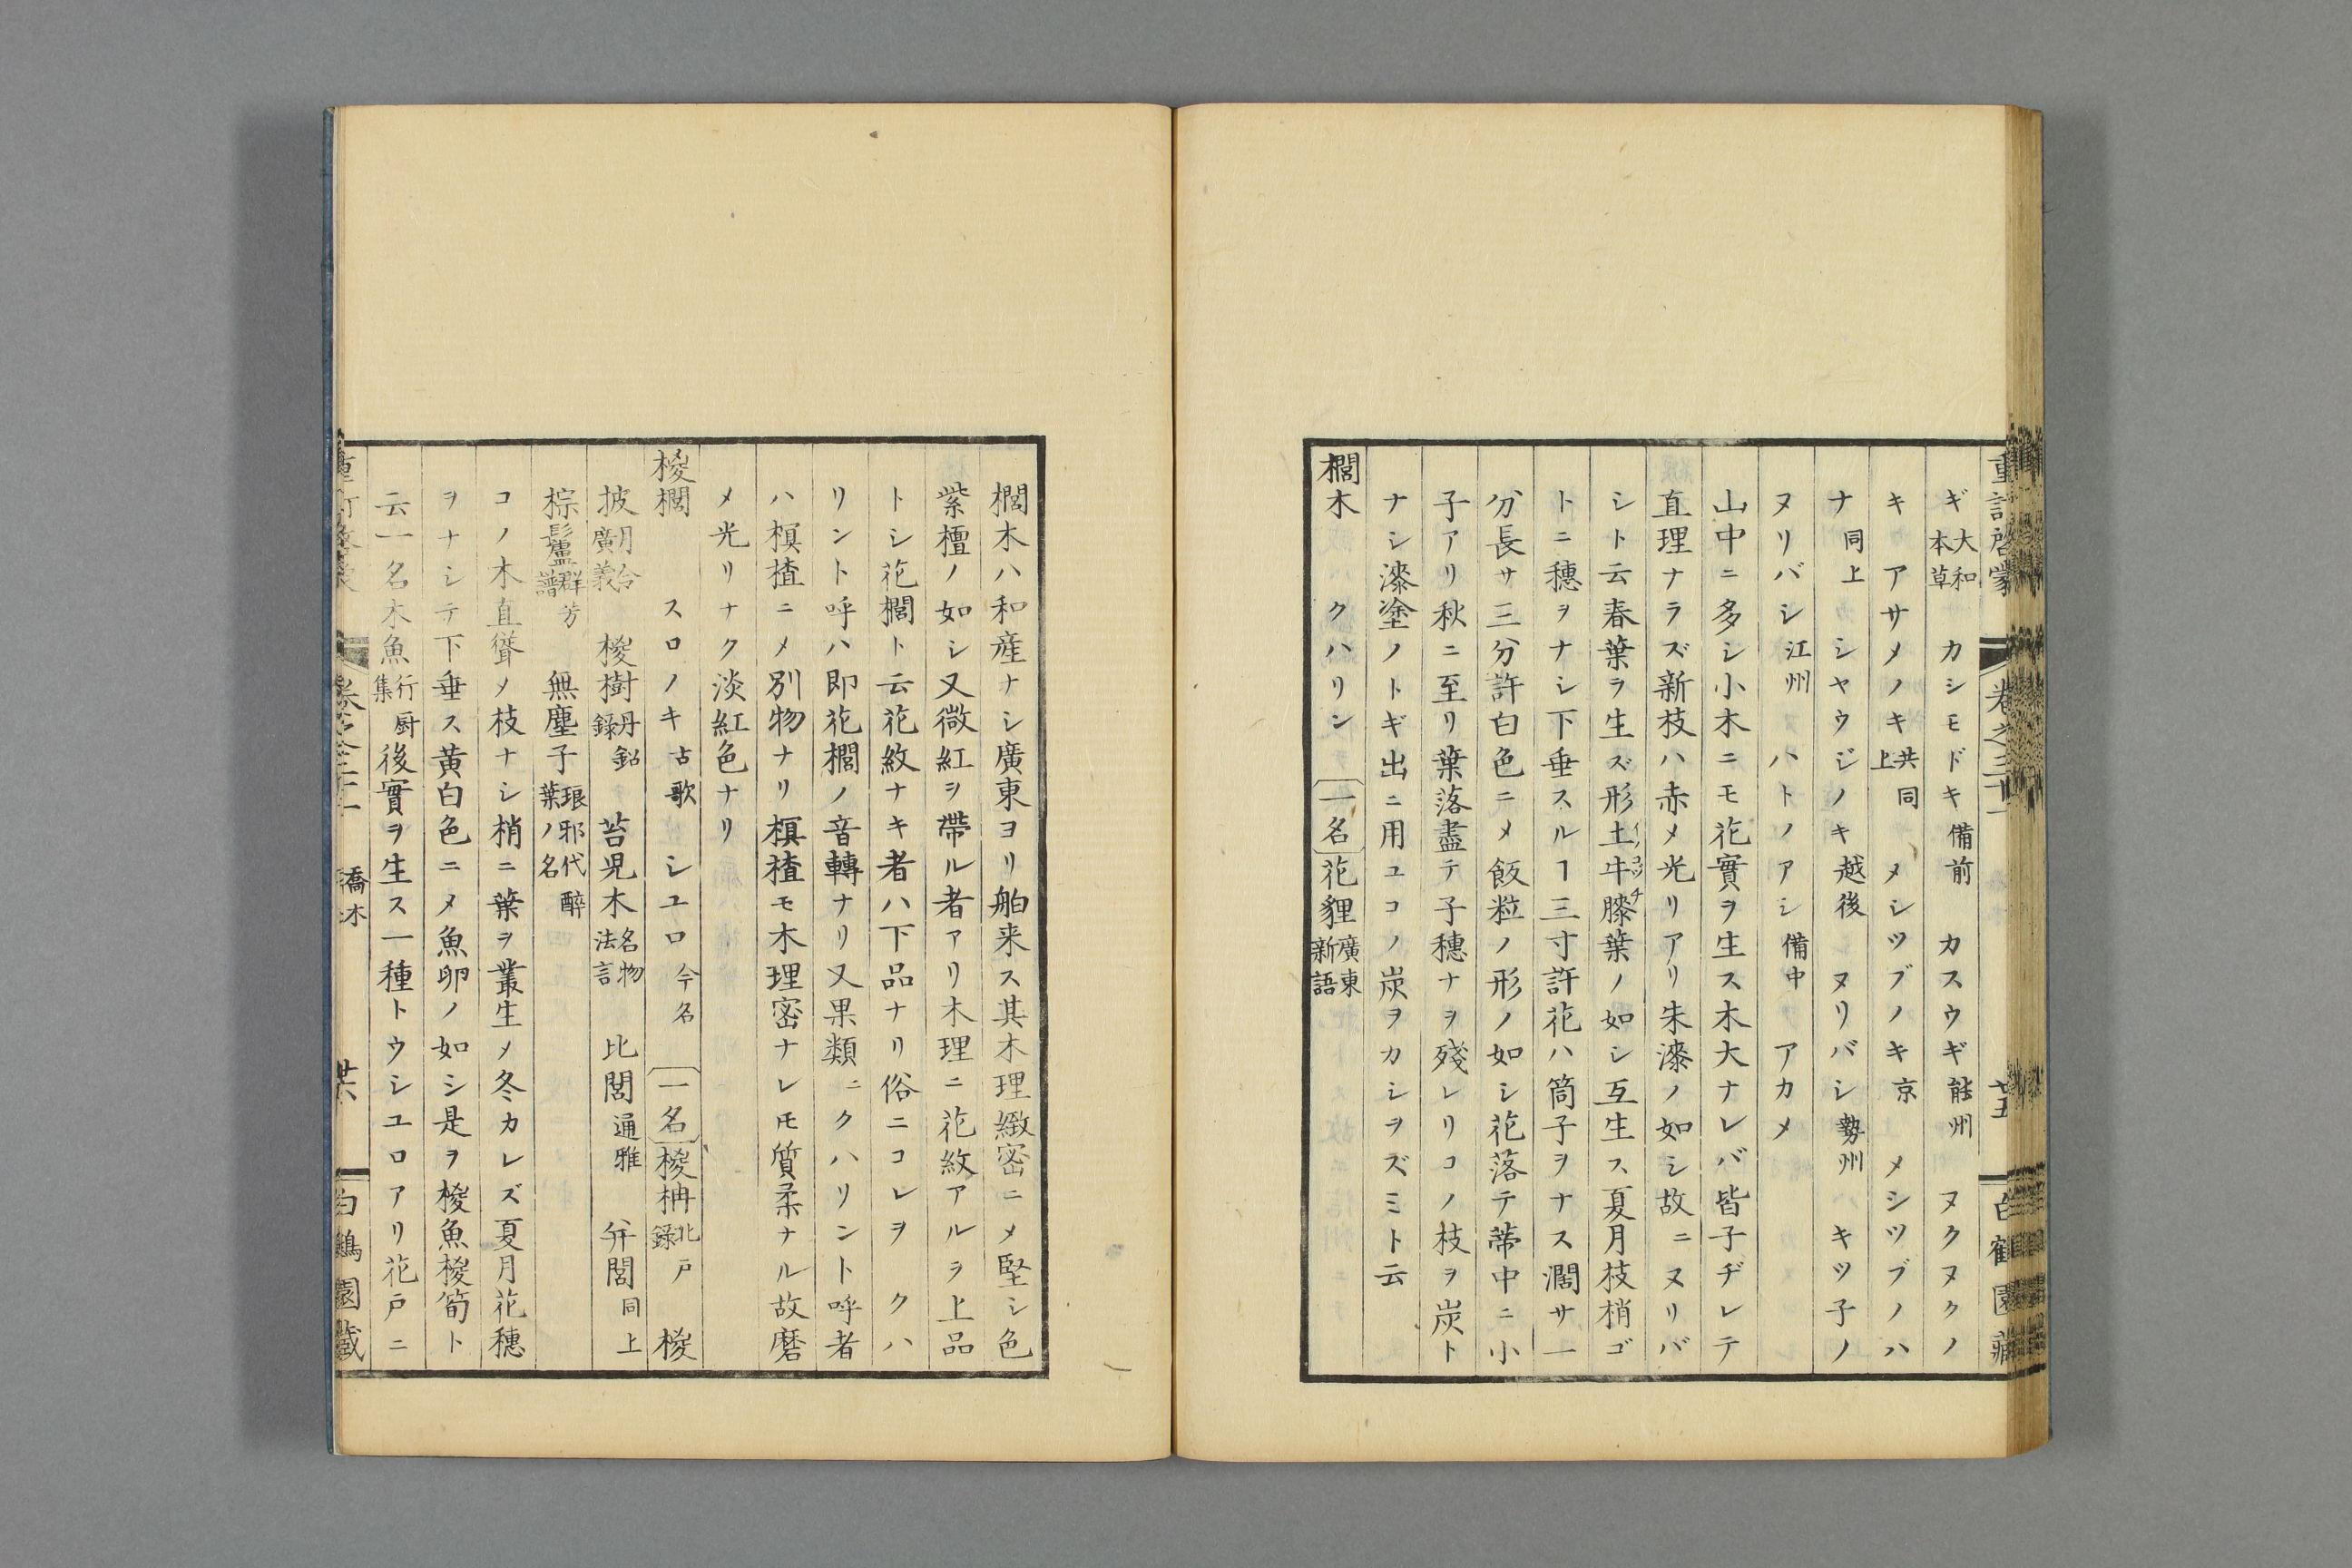 重訂啓蒙 卷之三十一 廿五 白鶴園藏
ギ 大和本草 カシモドキ 備前 カスウギ 能州 ヌクヌクノ
キ アサメノキ 共同上 メシツブノキ 京 メシツブノハ
ナ 同上 シヤウジノキ 越後 ヌリバシ 勢州 キツ子ノ
ヌリバシ 江州 ハトノアシ 備中 アカメ
山中ニ多シ小木ニモ花實ヲ生ス木大ナレバ皆子ヂレテ
直理ナラズ新枝ハ赤メ光リアリ朱漆ノ如シ故ニヌリバ
シト云春葉ヲ生ズ形土牛膝葉ノ如シ互生ス夏月枝梢ゴ
イノコヅチ
トニ穗ヲナシ下垂スルヿ三寸許花ハ筒子ヲナス濶サ一
分長サ三分許白色ニメ飯粒ノ形ノ如シ花落テ蒂中ニ小
子アリ秋ニ至リ葉落盡テ子穗ナヲ殘レリコノ枝ヲ炭ト
ナシ漆塗ノトギ出ニ用ユコノ炭ヲカシヲズミト云
櫚木 クハリン 一名 花貍 廣東新語
櫚木ハ和産ナシ廣東ヨリ舶来ス其木理緻密ニメ堅シ色
紫檀ノ如シ又微紅ヲ帶ル者アリ木理ニ花紋アルヲ上品
トシ花櫚ト云花紋ナキ者ハ下品ナリ俗ニコレヲ クハ
リント呼ハ即花櫚ノ音轉ナリ又果類ニクハリント呼者
ハ榠楂ニメ別物ナリ榠楂モ木理密ナレ𪜈質柔ナル故磨
メ光リナク淡紅色ナリ
椶櫚 スロノキ 古歌 シユロ 今名 一名 椶栴 北戸錄 椶
披 月令廣義 椶樹 丹鉛錄 苔児木 名物法言 比閭 通雅 幷閭 同上
棕髗 群芳譜 無塵子 琅邪代醉葉ノ名
コノ木直聳メ枝ナシ梢ニ葉ヲ叢生メ冬カレズ夏月花穗
ヲナシテ下垂ス黄白色ニメ魚卵ノ如シ是ヲ椶魚椶筍ト
云一名木魚 行厨集 後實ヲ生ス一種トウシユロアリ花戸ニ
喬木 廿六 白鶴園藏